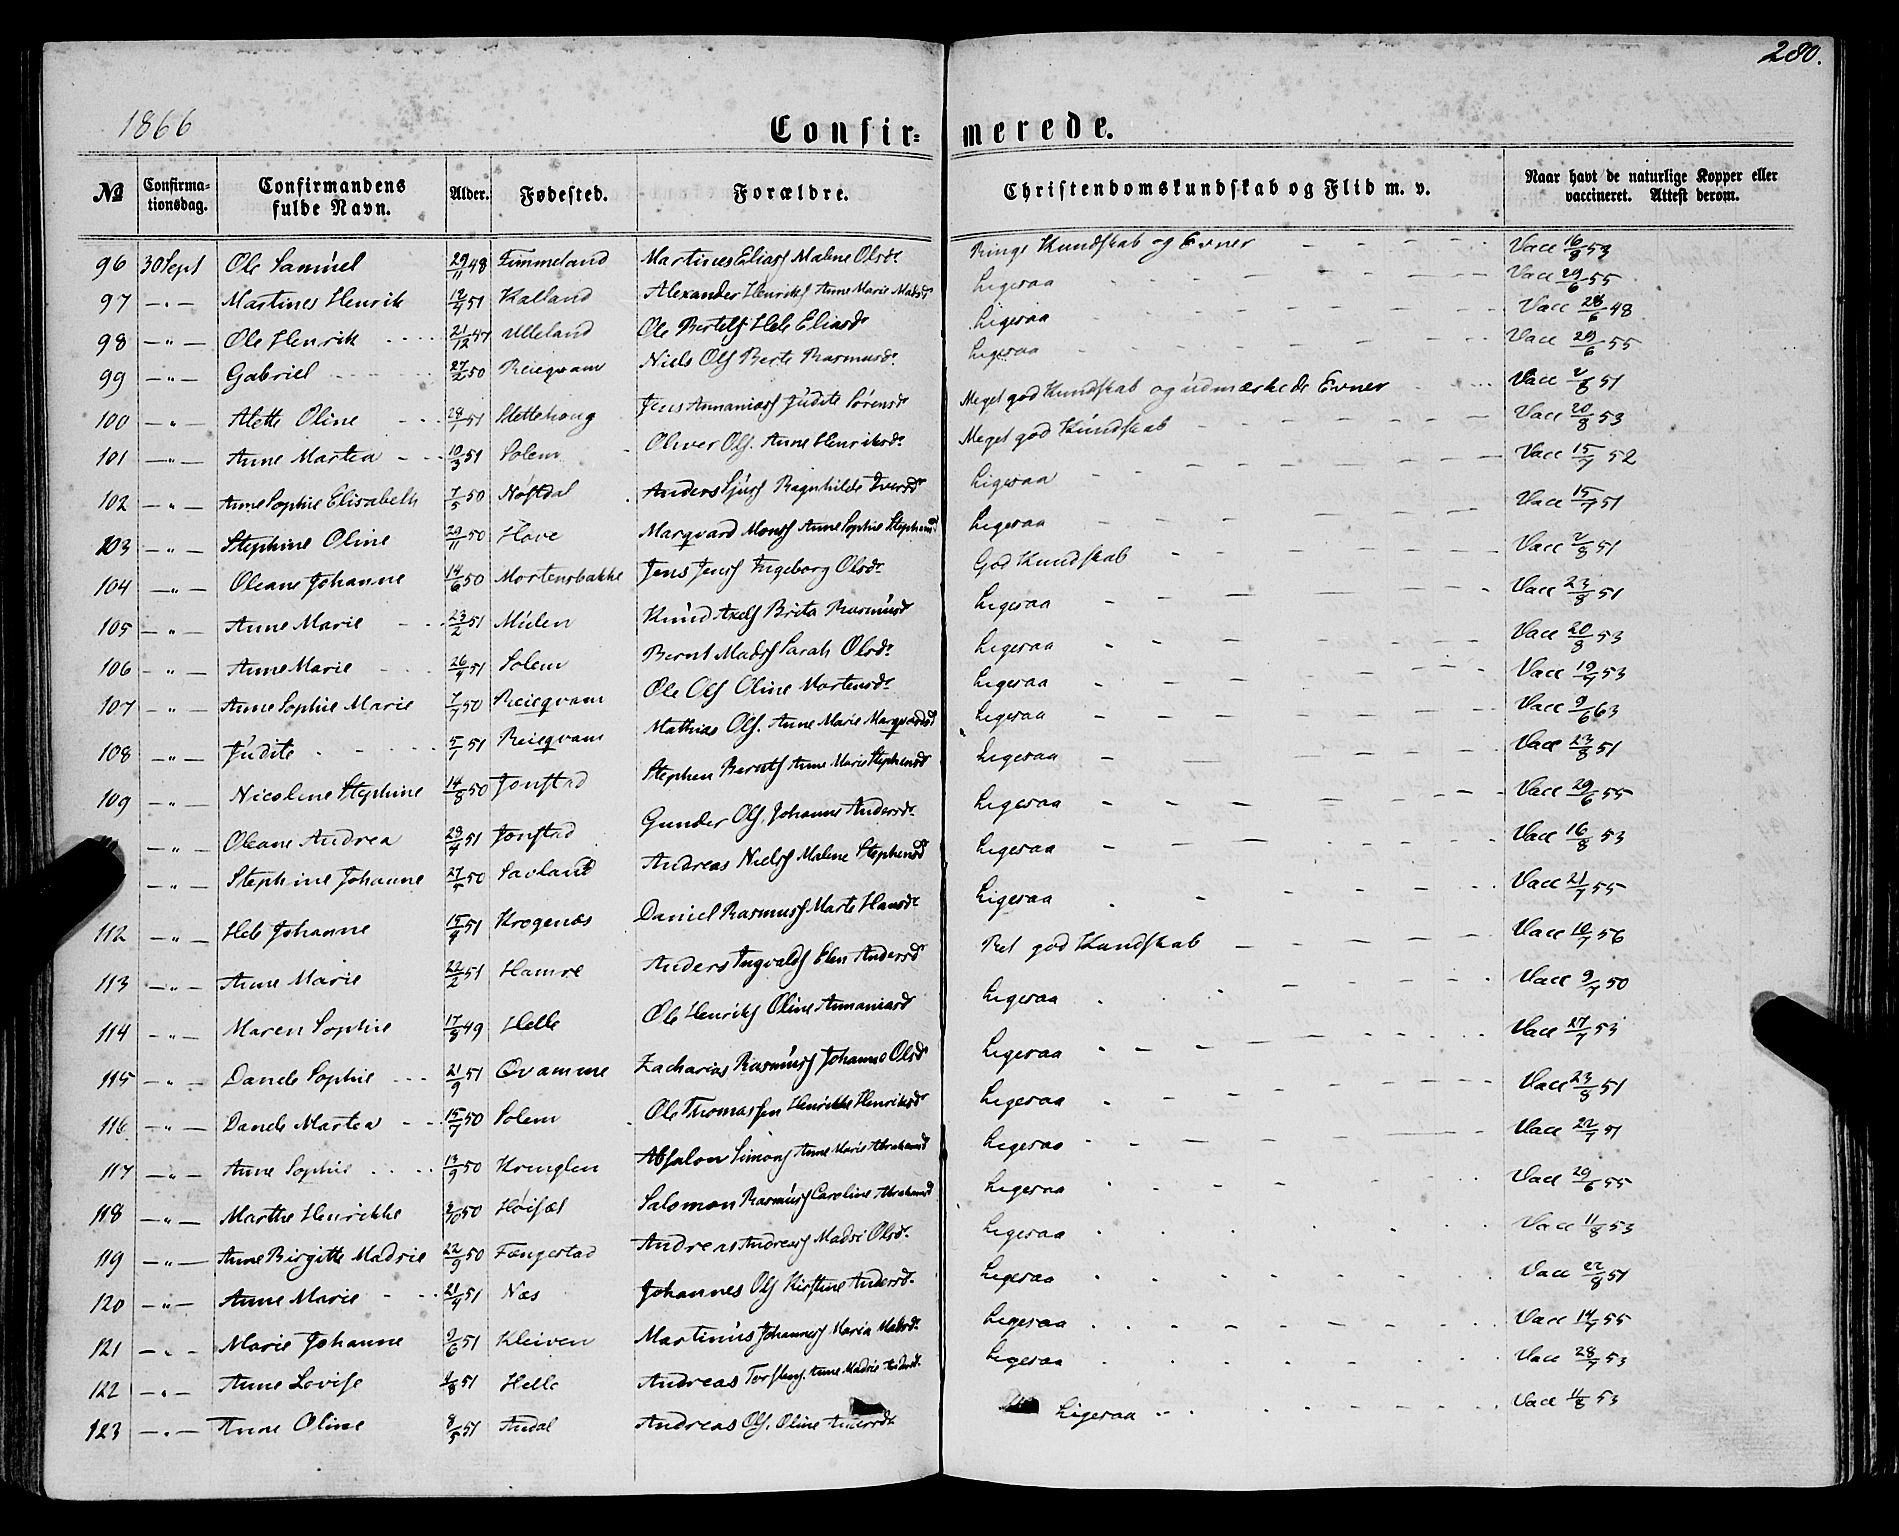 280.
1866
Confirmerede.
№ Confirmationsdag. Confirmandens fulde Navn. Alder. Fødested. Forældre. Christendomskundskab og Flid m. v. Naar havt de naturlige Kopper eller vaccineret. Attest derom.
96 30 Sept Ole Samuel 29/11 48 Fimmeland Martines Eliass Malene Olsdr Ringe Kundskab og Evner Vacc 16/8 53
97 — " — Martines Henrik 12/4 51 Kalland Alexander Henriks Anne Marie Madsd Ligesaa Vacc 29/6 55
98 — " — Ole Henrik 21/12 47 Ulleland Ole Bertels Hele Eliasdr Ligesaa Vacc 28/6 48
99 — " — Gabriel 27/2 50 Reieqvam Niels Ols Berte Rasmusdr Ligesaa Vacc 29/6 55
100 — " — Alette Oline 28/1 51 Slettehoug Jens Annanias Judite Sørensdr Meget god Kundskab og udmærkede Evner Vacc 2/8 51
101 — " — Anne Martea 10/3 51 Solem Oliver Ols. Anne Henriksdr Meget god Kundskab Vacc 20/8 53
102 — " — Anne Sophie Elisabeth 7/5 50 Nøstdal Anders Sjurs Ragnhilde Iversdr Ligesaa Vacc 15/7 52
103 — " — Stephine Oline 29/11 50 Hove Marqvard Mons Anne Sophie Stephensd Ligesaa Vacc 15/7 51
104 — " — Oleane Johanne 14/6 50 Mortensbakke Jens Jens Ingeborg Olsdr God Kundskab Vacc 2/8 51
105 — " — Anne Marie 23/2 51 Mulen Knud Axels Brita Rasmusd Ligesaa Vacc 23/8 51
106 — " — Anne Marie 26/4 51 Solem Bernt Mads Sarah Olsdr Ligesaa Vacc 20/8 53
107 — " — Anne Sophie Marie 7/7 50 Reieqvam Ole Ols Oline Mortensdr Ligesaa Vacc 19/7 53
108 — " — Judite 5/7 51 Reieqvam Mathias Ols. Anne Marie Marqvardsd Ligesaa Vacc 9/6 63
109 — " — Nicoline Stephine 14/8 50 Jonstad Stephen Bernts Anne Marie Stephensd Ligesaa Vacc 23/8 51
— " — Oleane Andrea 23/4 51 Jonstad Gunder Ols. Johanne Andersdr Ligesaa Vacc 29/6 55
— " — Stephine Johanne 27/5 50 Savland Andreas Niels Malene Stephensd Ligesaa Vacc 16/8 53
112 — " — Hele Johanne 15/4 51 Krogenæs Daniel Rasmus Marte Hansdr Ligesaa Vacc 21/7 55
113 — " — Anne Marie 22/2 51 Hamre Anders Ingvalds Elen Andersd Ret god Kundskab Vacc 10/7 56
114 — " — Maren Sophie 17/8 49 Helle Ole Henriks Oline Annaniasd Ligesaa Vacc 9/7 50
115 — " — Danele Sophie 21/9 51 Qvamme Zacharias Rasmus Johanne Olsd Ligesaa Vacc 27/7 53
116 — " — Danele Martea 15/7 50 Solem Ole Thomassen Henrikke Henriksd Ligesaa Vacc 23/8 51
117 — " — Anne Sophie 13/9 50 Krenglen Absalon Simons Anne Marie Abrahamsd Ligesaa Vacc 22/7 51
118 — " — Marthe Henrikke 2/10 50 Høisæt Salomon Rasmus Caroline Abrahamsd Ligesaa Vacc 29/6 55
119 — " — Anne Birgitte Madsie 22/9 50 Fængestad Andreas Andreas Madsi Olsdr Ligesaa Vacc 11/8 53
120 — " — Anne Marie 21/4 51 Næs Johannes Ols Kirstine Andersdr Ligesaa Vacc 22/8 51
121 — " — Marie Johanne 9/6 51 Kleiven Martinus Johannes Maria Madsdr Ligesaa Vacc 14/7 55
122 — " — Anne Lovise 1/8 51 Helle Andreas Torstens. Anne Madsie Andersd Ligesaa Vacc 28/7 53
123 — " — Anne Oline 8/5 51 Andal Andreas Ols. Oline Andersdr Ligesaa Vacc 11/8 53